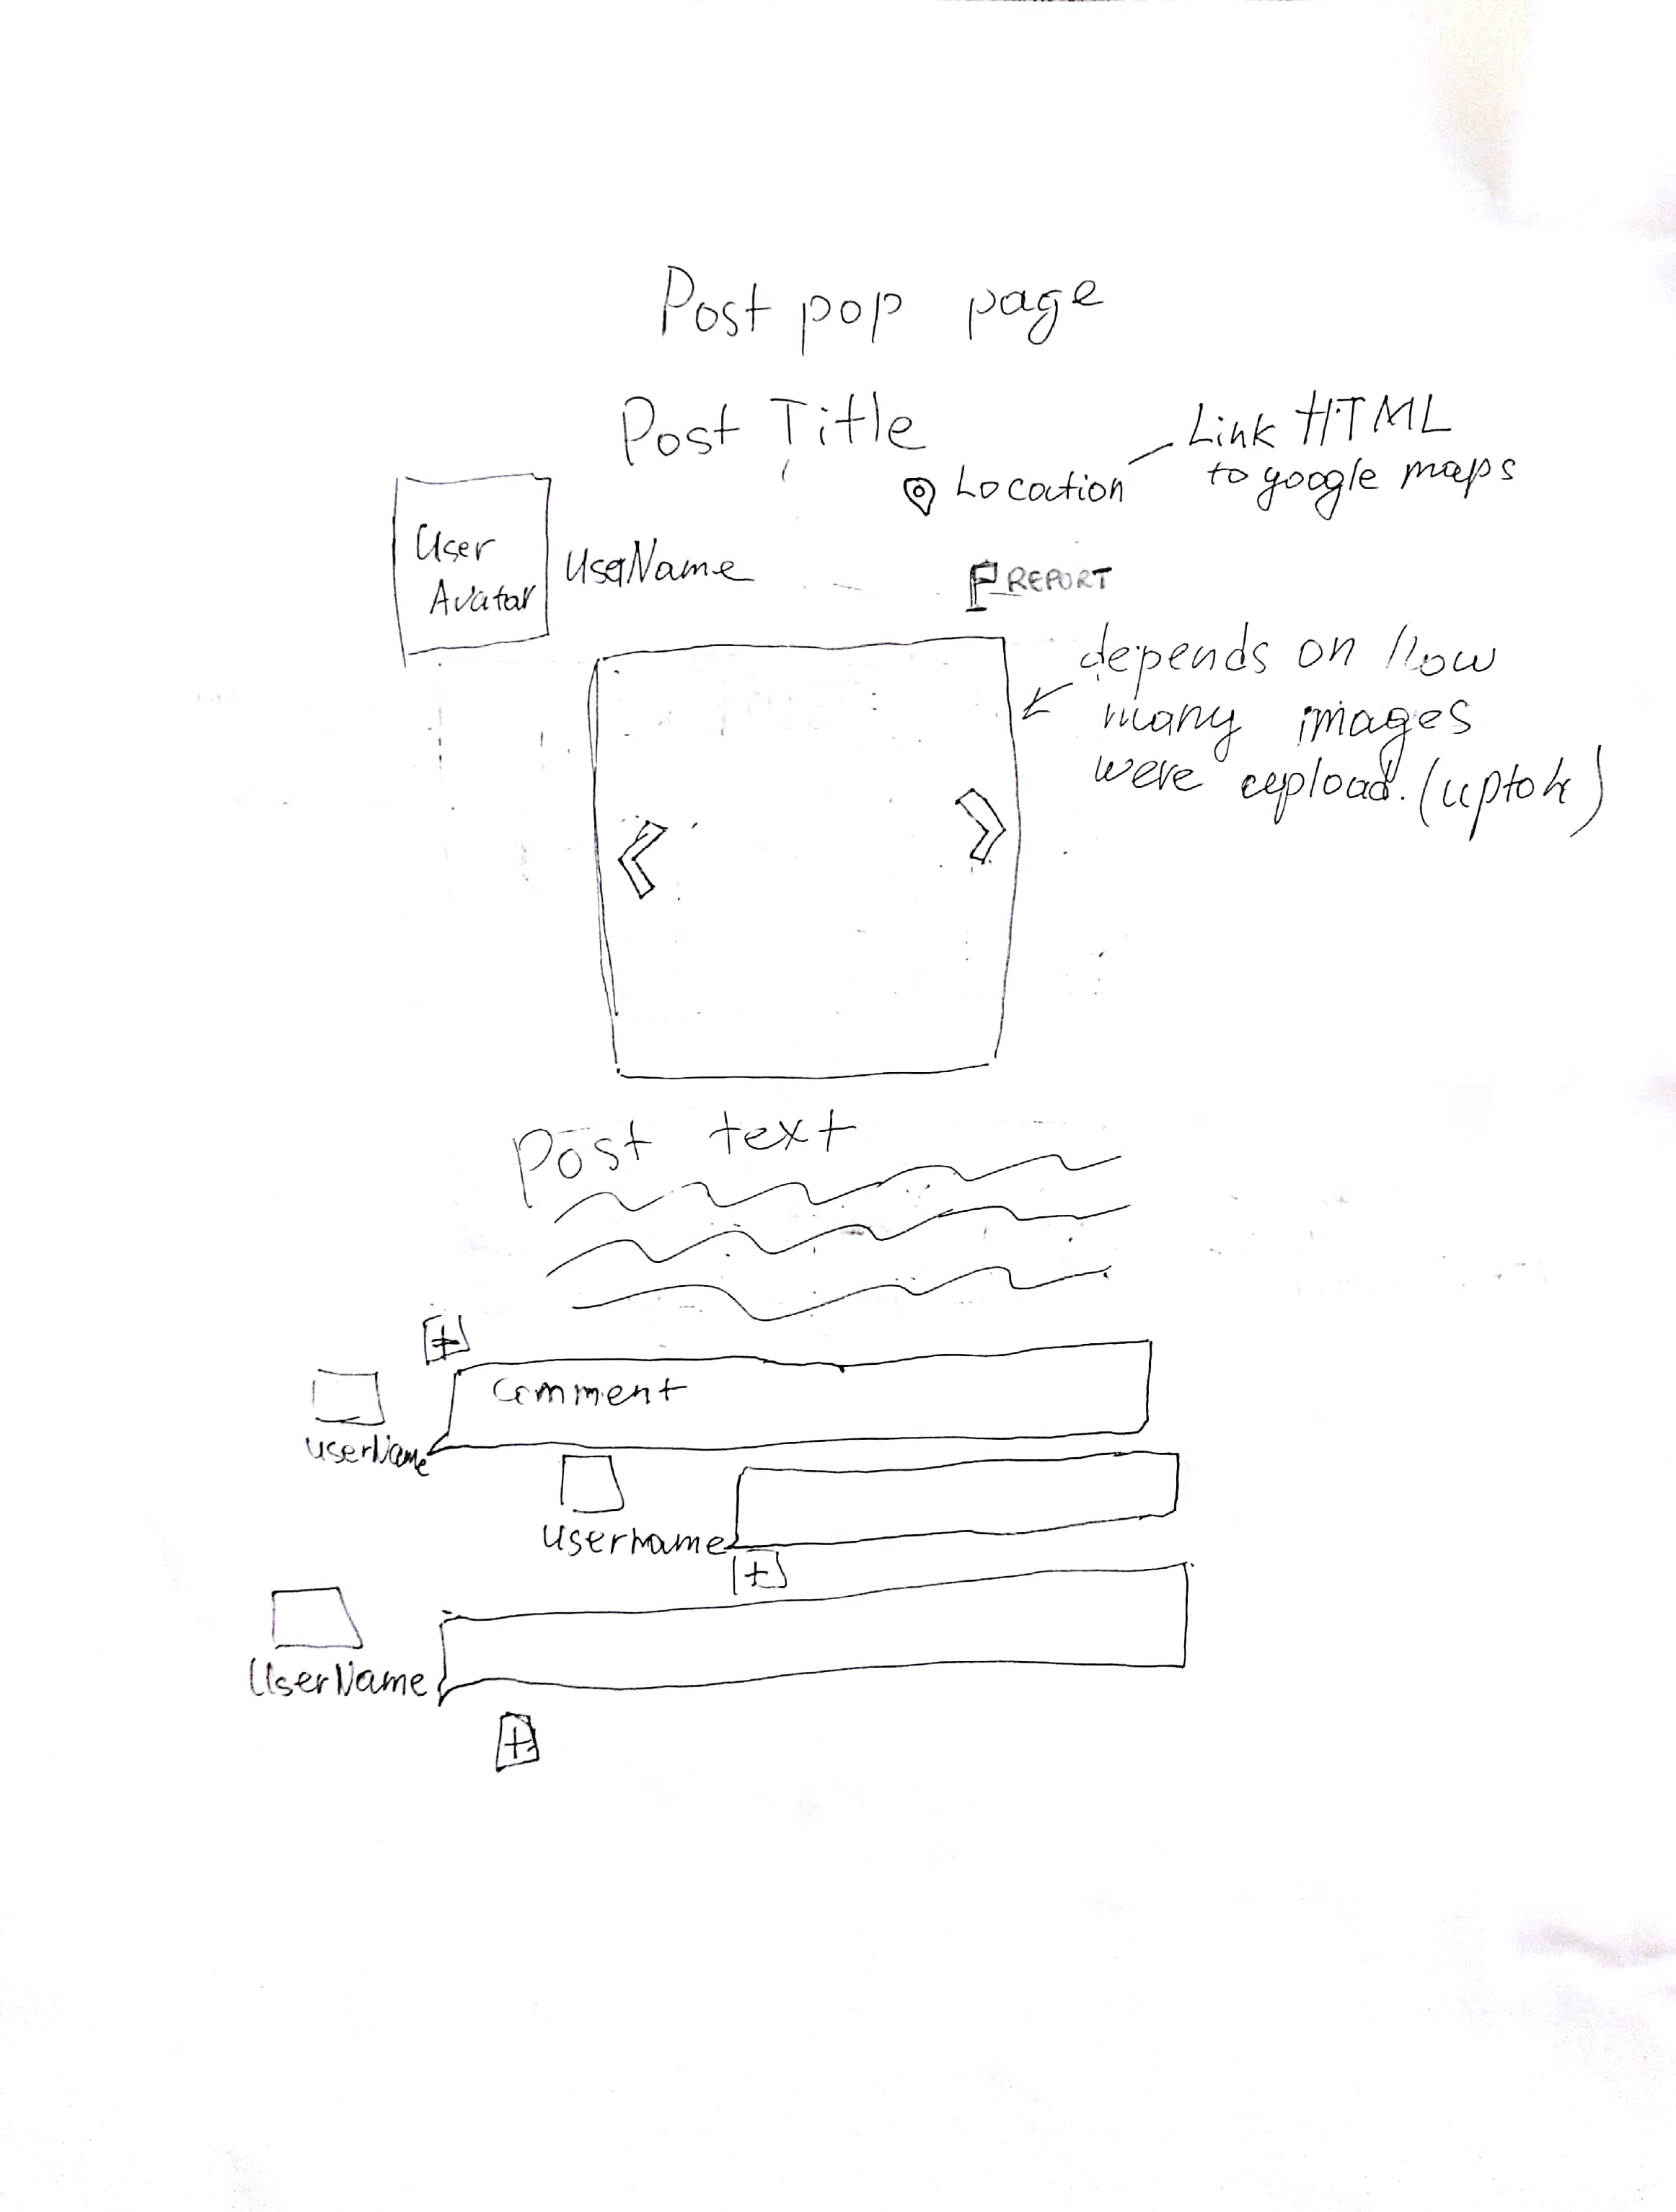 Post pop page
Post Title
Link HTML
to google maps
Location
User
Avatar
UserName
REPORT
depends on how
many images
were upload. (upto 4)
Post text
+
Comment
userName
username
+
UserName
+